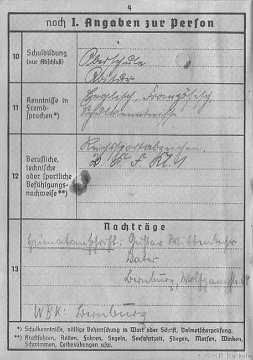 4
noch I. Angaben zur Person
10
Schulbildung
(nur Abschluß)
Oberschule
Abitur
11
Kenntnisse in
Fremd-
sprachen*)
Englisch, Französisch
Schulkenntnisse
12
Berufliche,
technische
oder sportliche
Befähigungs-
nachweise**)
Reichssportabzeichen
Kl. 1
Nachträge
13
Heimatanschrift: Gustav Wittenbecher
Vater
Bernburg,
WBK: Bernburg
*) Schulkenntnisse, völlige Beherrschung in Wort oder Schrift, Dolmetscherprüfung.
**) Kraftfahren, Reiten, Fahren, Segeln, Seefahrtzeit, Fliegen, Morsen, Winken,
Schwimmen, Leibesübungen usw.